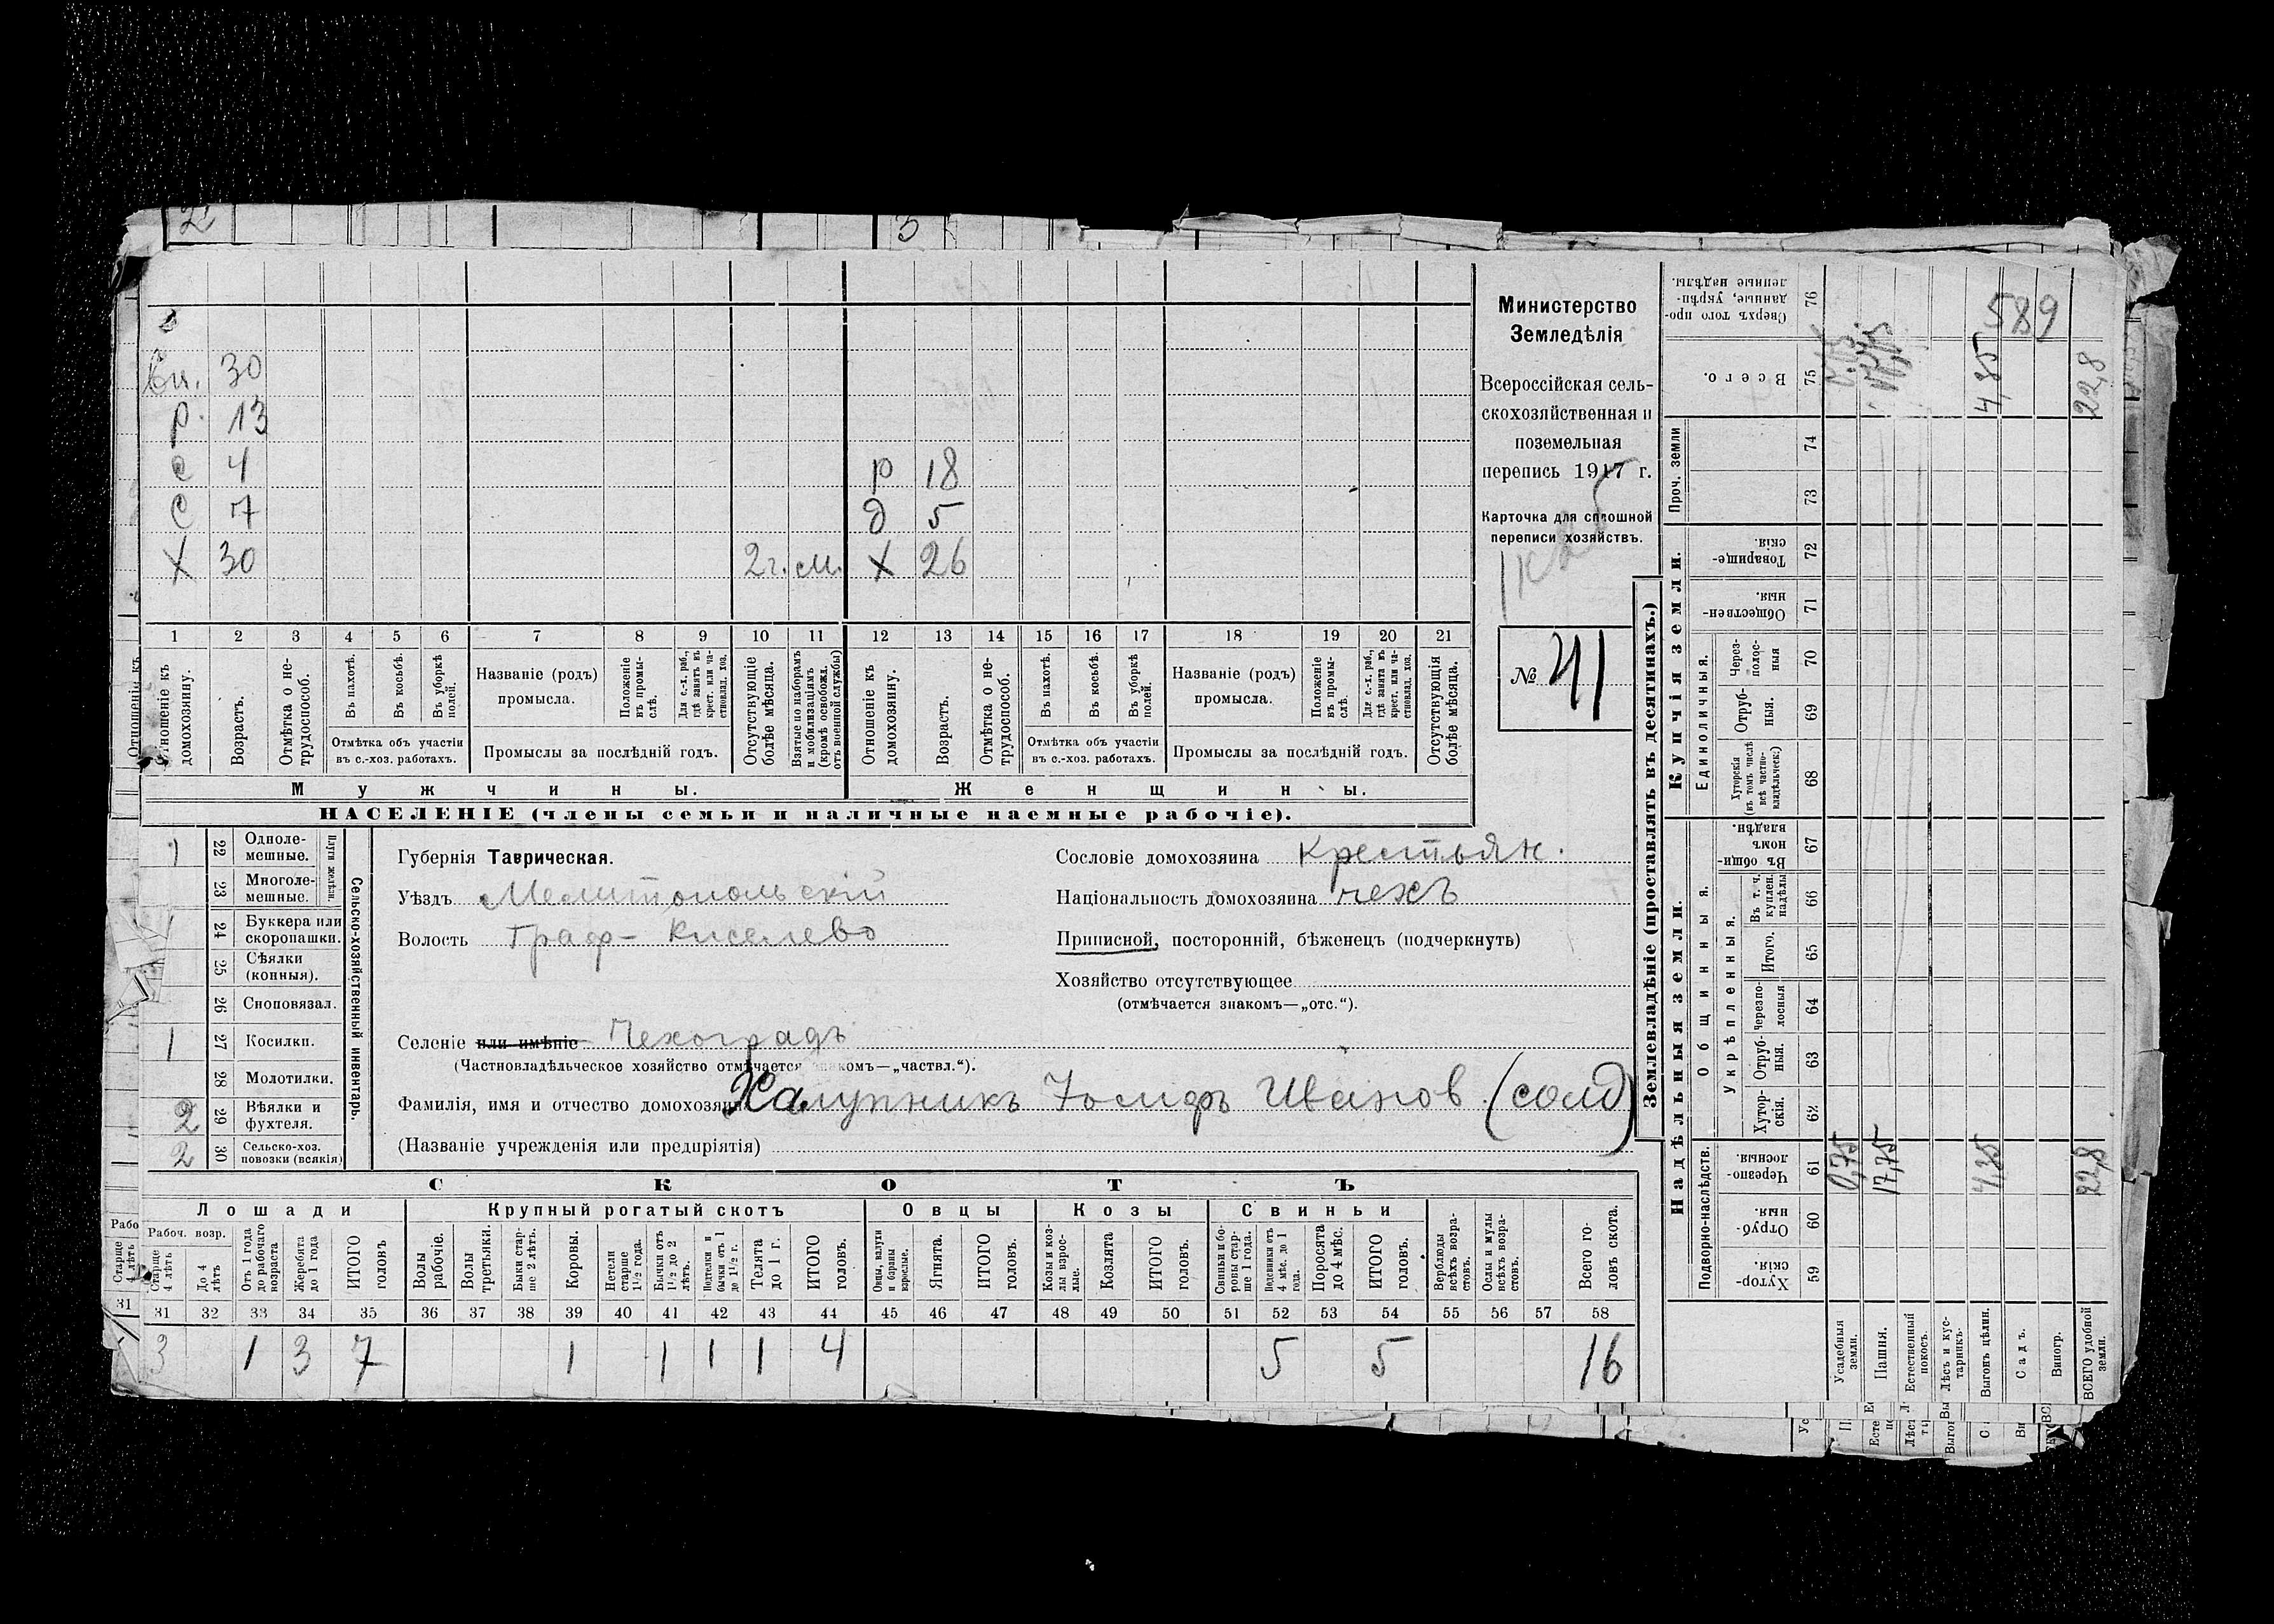 2 3
Вн. 30
Р. 13
С 4 Р 18
С 7 д 5
Х 30 2 г. м. Х 26
1 2 3 4 5 6 7 8 9 10 11 12 13 14 15 16 17 18 19 20 21
Отношеніе къ домохозяину.
Возрастъ.
Отмѣтка о не-трудоспособ.
Въ пахотѣ.
Въ косьбѣ.
Въ уборкѣ полей.
Отмѣтка объ участіи въ с.-хоз. работахъ.
Названіе (родъ) промысла.
Положеніе въ промы-слѣ.
Для с.-х. раб., гдѣ занятъ въ крест. или ча-стновлад. хоз.
Промыслы за послѣдній годъ.
Отсутствующіе болѣе мѣсяца.
Взятые по наборамъ и мобилизаціямъ (кромѣ освобожд. отъ военной службы)
Отношеніе къ домохозяину.
Возрастъ.
Отмѣтка о не-трудоспособ.
Въ пахотѣ.
Въ косьбѣ.
Въ уборкѣ полей.
Отмѣтка объ участіи въ с.-хоз. работахъ.
Названіе (родъ) промысла.
Положеніе въ промы-слѣ.
Для с.-х. раб., гдѣ занята въ крест. или ча-стновлад. хоз.
Промыслы за послѣдній годъ.
Отсутствующія болѣе мѣсяца.
Мужчины. Женщины.
НАСЕЛЕНІЕ (члены семьи и наличные наемные рабочіе).
Министерство
Земледѣлія
Всероссійская сель-
скохозяйственная и
поземельная
перепись 1917 г.
Карточка для сплошной
переписи хозяйствъ.
№ 41
1 22 Одноле-мешные.
23 Многоле-мешные.
Плуги желѣзн.
1 24 Буккера или скоропашки.
25 Сѣялки (конныя).
26 Сноповязал.
1 27 Косилки.
28 Молотилки.
2 29 Вѣялки и фухтеля.
2 30 Сельско-хоз. повозки (всякія)
Сельско-хозяйственный инвентарь.
Губернія Таврическая.
Уѣздъ Мелитопольскій
Волость Граф-Киселево
Селеніе или имѣніе Чехоградъ
(Частновладѣльческое хозяйство отмѣчается знакомъ—„частвл.“).
Фамилія, имя и отчество домохозяина Халупникъ Іосифъ Иванов (солд)
(Названіе учрежденія или предпріятія)
Сословіе домохозяина Крестьян.
Національность домохозяина чехъ
Приписной, посторонній, бѣженецъ (подчеркнуть)
Хозяйство отсутствующее
(отмѣчается знакомъ—„отс.“).
СКОТЪ
Лошади Крупный рогатый скотъ Овцы Козы Свиньи
Рабоч. возр.
Старше 4 лѣтъ
До 4 лѣтъ
Отъ 1 года до рабочаго возраста
Жеребята до 1 года
ИТОГО головъ
Волы рабочіе.
Волы третьяки.
Быки стар-ше 2 лѣтъ.
Коровы.
Нетели старше 1½ года.
Бычки отъ 1½ до 2 лѣтъ.
Подтелки и бычки отъ 1 до 1½ г.
Телята до 1 г.
ИТОГО головъ.
Овцы, валухи и бараны взрослые.
Ягнята.
ИТОГО головъ.
Козы и коз-лы взрос-лые.
Козлята
ИТОГО головъ.
Свиньи и бо-ровы стар-ше 1 года.
Подсвинки отъ 4 мѣс. до 1 года.
Поросята до 4 мѣс.
ИТОГО головъ.
Верблюды всѣхъ возра-стовъ.
Ослы и мулы всѣхъ возра-стовъ.
Всего го-ловъ скота.
31 32 33 34 35 36 37 38 39 40 41 42 43 44 45 46 47 48 49 50 51 52 53 54 55 56 57 58
3 1 3 7 1 1 1 1 4 5 5 16
Землевладѣніе (проставлять въ десятинахъ.)
Надѣльныя земли. Купчія земли. Проч. земли
Подворно-наслѣдств.
Общинныя.
Укрѣпленныя.
Единоличныя.
Хутор-скія. 59
Отруб-ныя. 60
Черезпо-лосныя. 61
Хутор-скія. 62
Отруб-ныя. 63
Черезпо-лосныя 64
Итого. 65
Въ т. ч. куплен. надѣлы 66
Въ общи-номъ владѣн. 67
Хуторскія (въ томъ числѣ всѣ частно-владѣльческ.) 68
Отруб-ныя. 69
Через-полос-ныя 70
Обществен-ныя. 71
Товарище-скія. 72
73
74
Всего. 75
Сверхъ того про-данные, укрѣп-ленные надѣлы. 76
Усадебныя земли. 0,75
Пашня. 17,75
Естественный покосъ.
Лѣсъ и кус-тарникъ.
Выгонъ цѣлин. 4,35 4,35
Садъ.
Виногр.
ВСЕГО удобной земли. 22,8 22,8
589